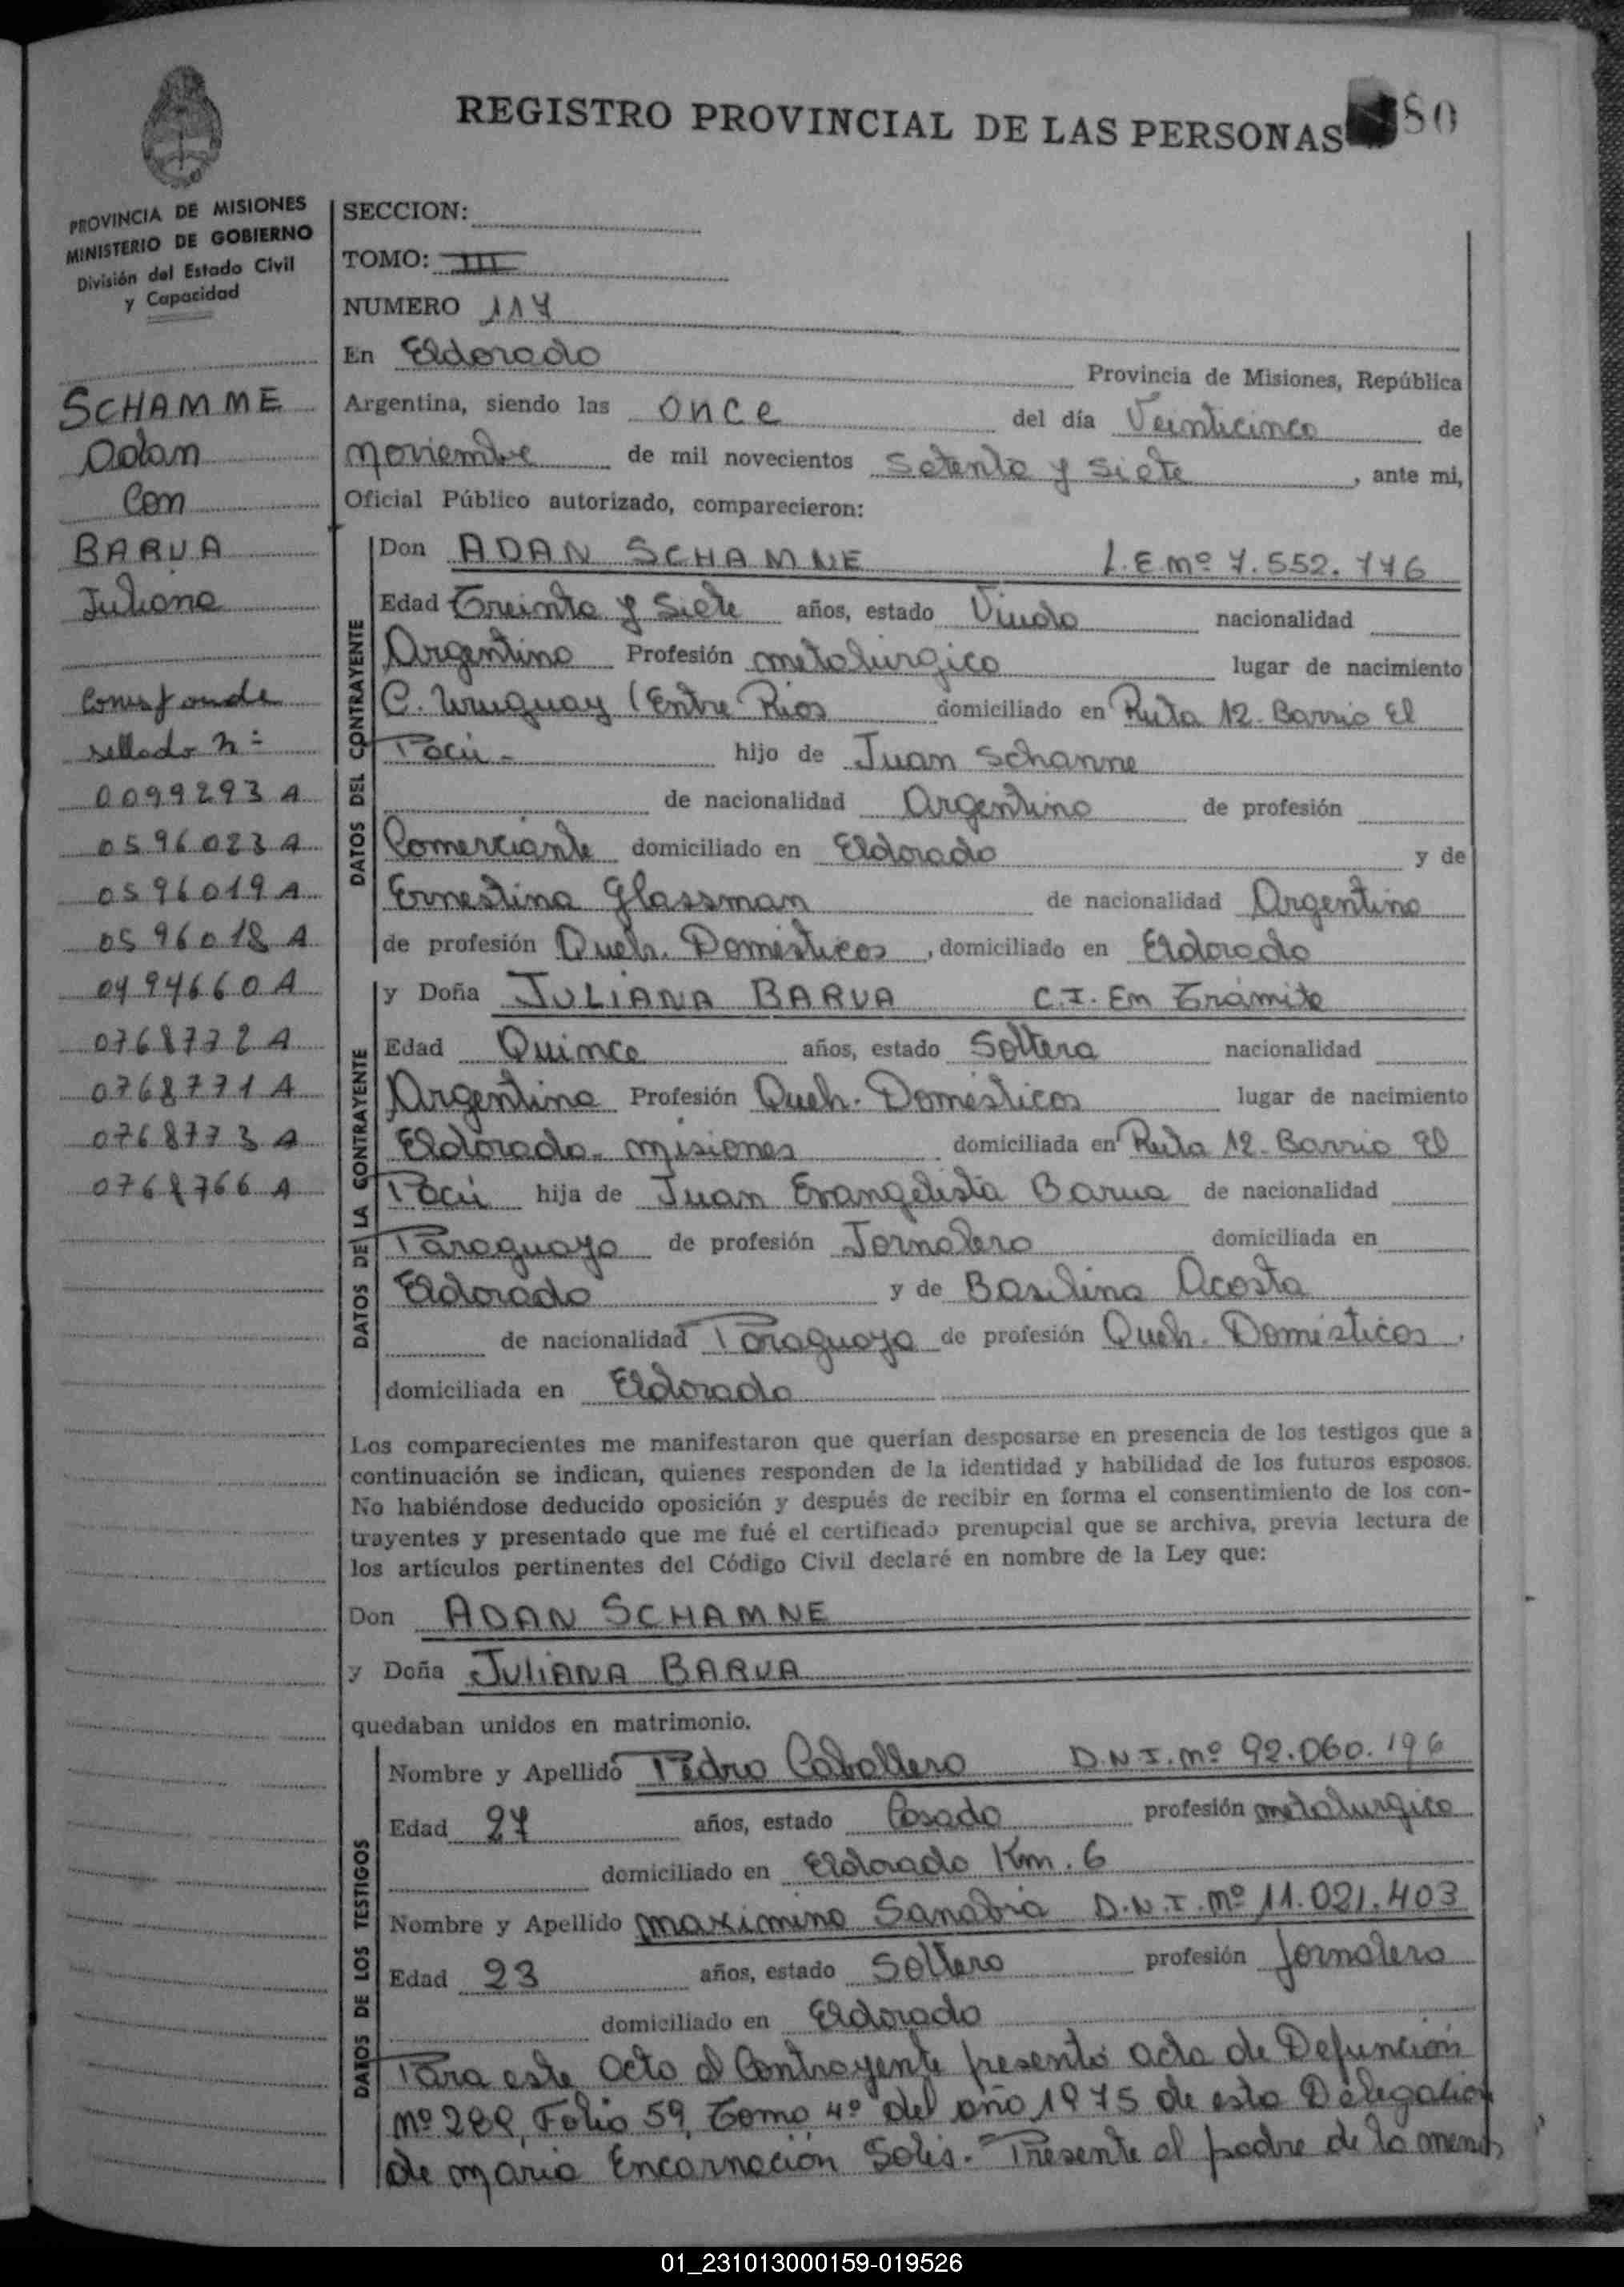 REGISTRO PROVINCIAL DE LAS PERSONAS
80
PROVINCIA DE MISIONES
MINISTERIO DE GOBIERNO
División del Estado Civil
y Capacidad
SCHAMME
Adan
Con
BARUA
Juliana
Corresponde
sellado nº
0099293 A
0596023 A
0596019 A
0596018 A
0494660 A
0768772 A
0768771 A
0768773 A
0768766 A
SECCION:
TOMO: III
NUMERO 117
En Eldorado Provincia de Misiones, República
Argentina, siendo las once del día Veinticinco de
Noviembre de mil novecientos Setenta y Siete, ante mi,
Oficial Público autorizado, comparecieron:
DATOS DEL CONTRAYENTE
Don ADAN SCHAMNE L.E.Nº 7.552.776
Edad Treinta y Siete años, estado Viudo nacionalidad
Argentino Profesión metalurgico lugar de nacimiento
C. Uruguay (Entre Rios domiciliado en Ruta 12- Barrio El
Pacú - hijo de Juan Schanne
de nacionalidad Argentino de profesión
Comerciante domiciliado en Eldorado y de
Ernestina Glassman de nacionalidad Argentina
de profesión Queh. Domésticos, domiciliado en Eldorado
DATOS DE LA CONTRAYENTE
y Doña JULIANA BARUA C.I. En Trámite
Edad Quince años, estado Soltera nacionalidad
Argentina Profesión Queh. Domésticos lugar de nacimiento
Eldorado- Misiones domiciliada en Ruta 12- Barrio El
Pacú hija de Juan Evangelista Barua de nacionalidad
Paraguayo de profesión Jornalero domiciliada en
Eldorado y de Basilina Acosta
de nacionalidad Paraguaya de profesión Queh. Domésticos,
domiciliada en Eldorado
Los comparecientes me manifestaron que querían desposarse en presencia de los testigos que a
continuación se indican, quienes responden de la identidad y habilidad de los futuros esposos.
No habiéndose deducido oposición y después de recibir en forma el consentimiento de los con-
trayentes y presentado que me fué el certificado prenupcial que se archiva, previa lectura de
los artículos pertinentes del Código Civil declaré en nombre de la Ley que:
Don ADAN SCHAMNE
y Doña JULIANA BARUA
quedaban unidos en matrimonio.
DATOS DE LOS TESTIGOS
Nombre y Apellido Pedro Caballero D.N.I.Nº 92.060.196
Edad 27 años, estado Casado profesión metalurgico
domiciliado en Eldorado Km. 6
Nombre y Apellido Maximino Sanabria D.N.I.Nº 11.021.403
Edad 23 años, estado Soltero profesión Jornalero
domiciliado en Eldorado
Para este acto el Contrayente presentó acta de Defunción
Nº 289, Folio 59, Tomo 4º del año 1975 de esta Delegación
de Maria Encarnación Solis.- Presente el padre de la menor
01_231013000159-019526